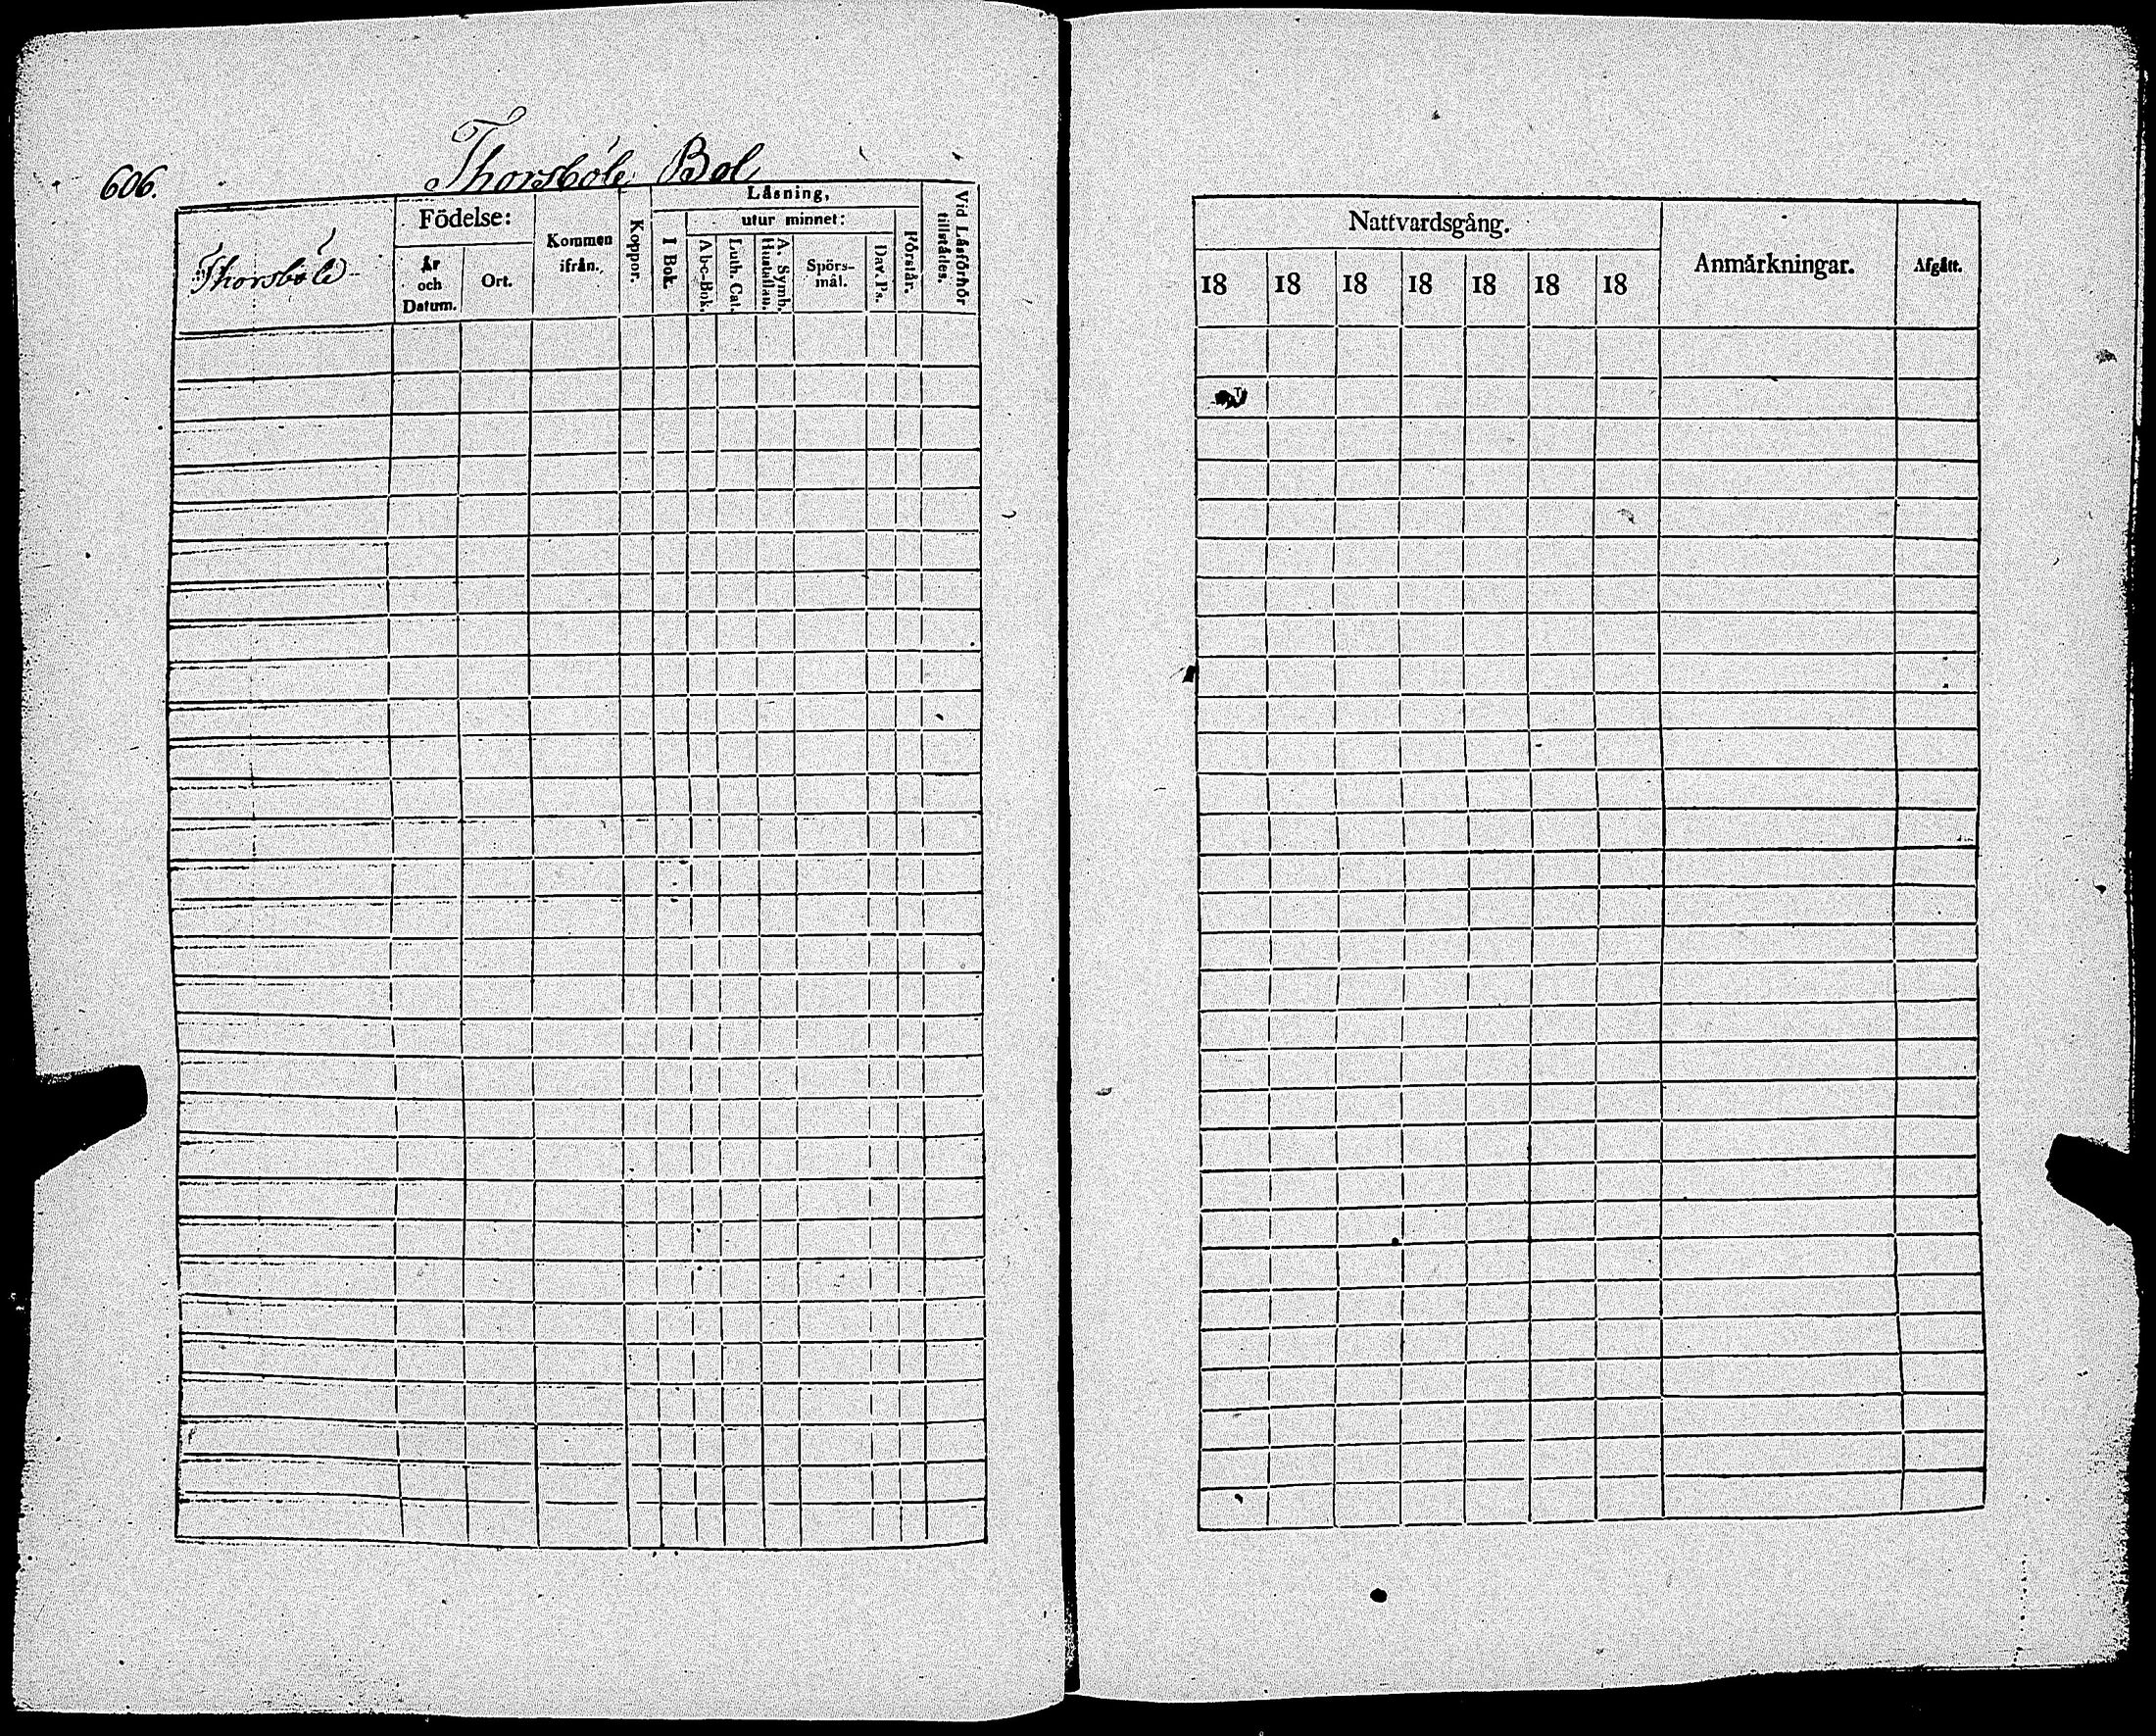 606.
Thorsböle Bol
Thorsböle
Födelse:
År och Datum.
Ort.
Kommen ifrån.
Koppor.
Läsning,
I Bok.
utur minnet:
A b-c-Bok.
Luth. Cat.
A. Symb. Hustaflan.
Spörs-mål.
Dav. Ps.
Förstår.
Vid Läsförhör tillstädes.
Nattvardsgång.
18 18 18 18 18 18 18
Anmärkningar.
Afgått.